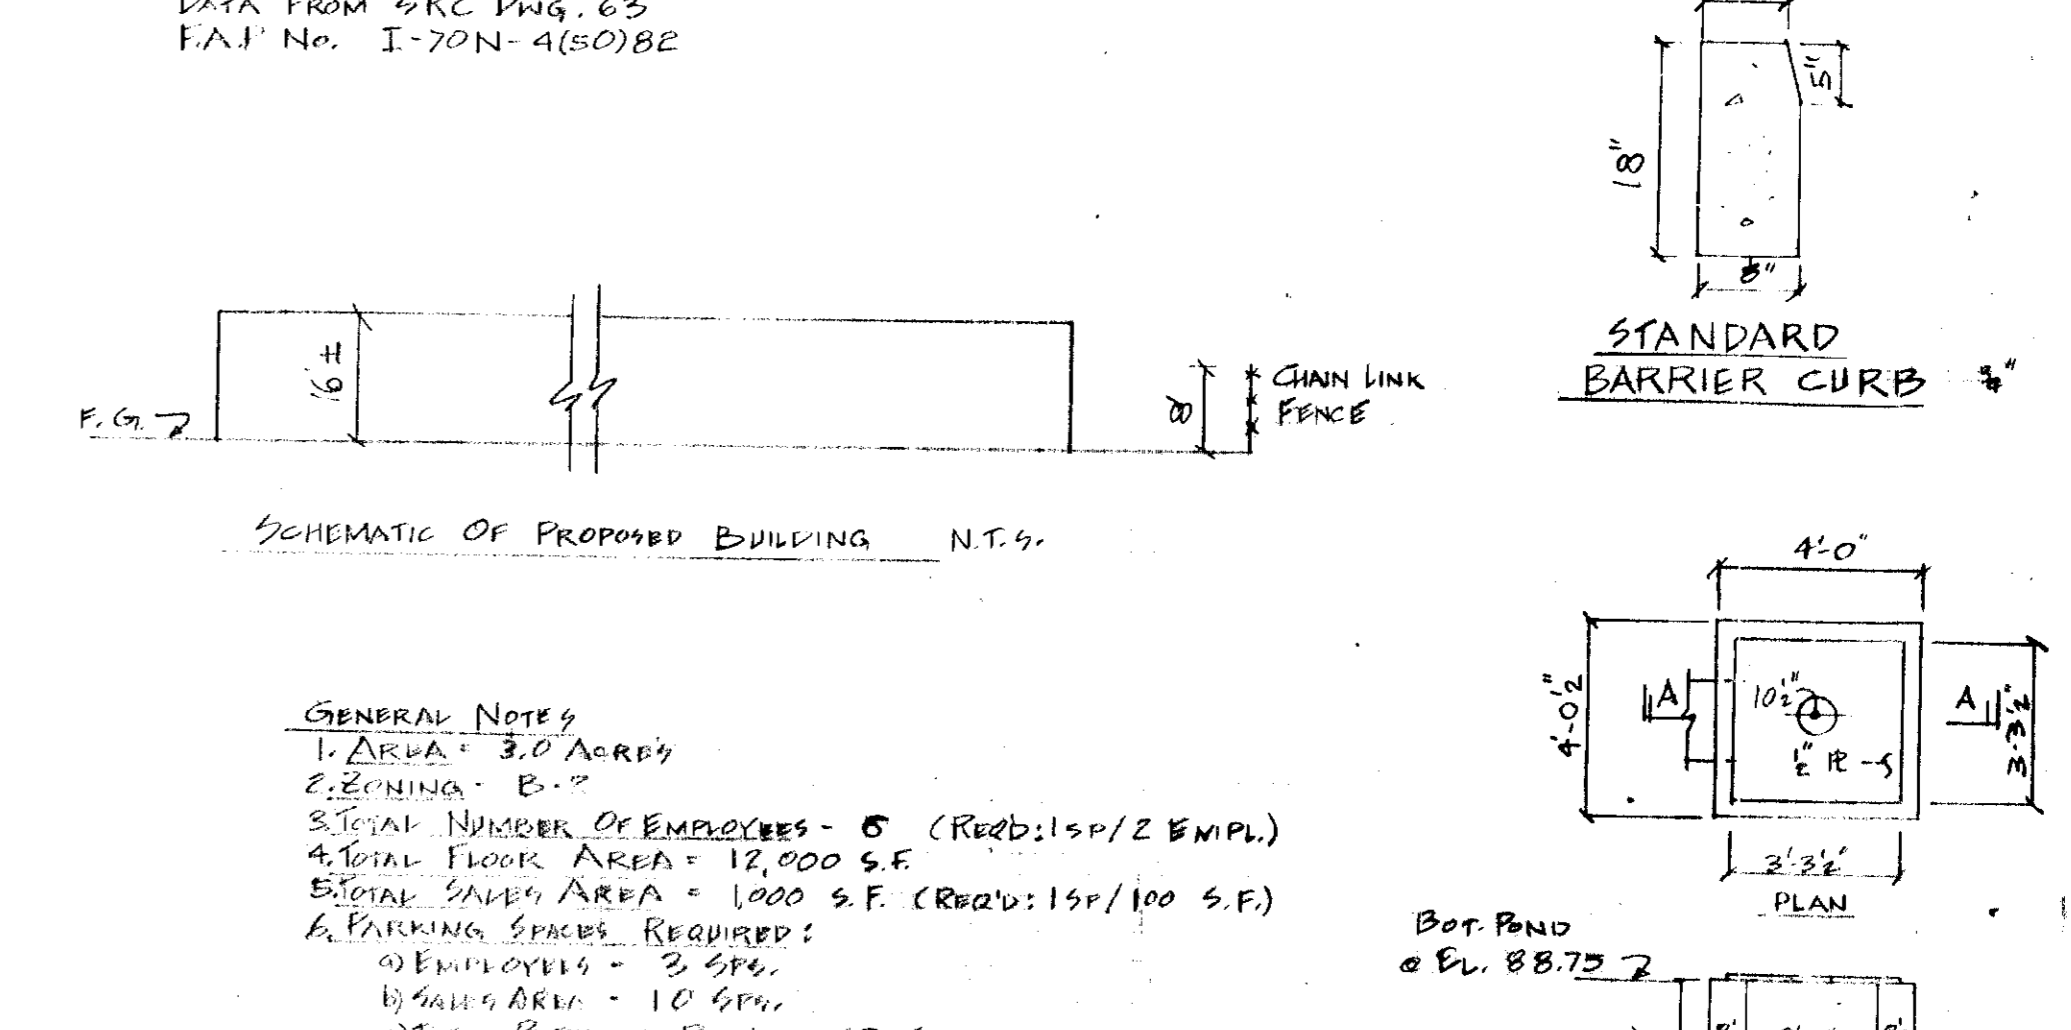 DATA FROM SRC DWG. 63
F.A.P No. I-70N-4(50)82
5"
18"
8"
STANDARD
BARRIER CURB
16' ±
F.G.
8'
CHAIN LINK
FENCE
SCHEMATIC OF PROPOSED BUILDING N.T.S.
4'-0"
4'-0½"
A
10½"
A
½" PL
3'-3½"
3'-3½'
PLAN
GENERAL NOTES
1. AREA = 3.0 ACRES
2. ZONING - B-
3. TOTAL NUMBER OF EMPLOYEES - (REQD: 1 SP/2 EMPL.)
4. TOTAL FLOOR AREA = 12,000 S.F.
5. TOTAL SALES AREA = 1,000 S.F. (REQ'D: 1 SP/100 S.F.)
6. PARKING SPACES REQUIRED:
a) EMPLOYEES - 3 SPS.
b) SALES AREA - 10 SPS.
BOT. POND
@ EL. 88.75